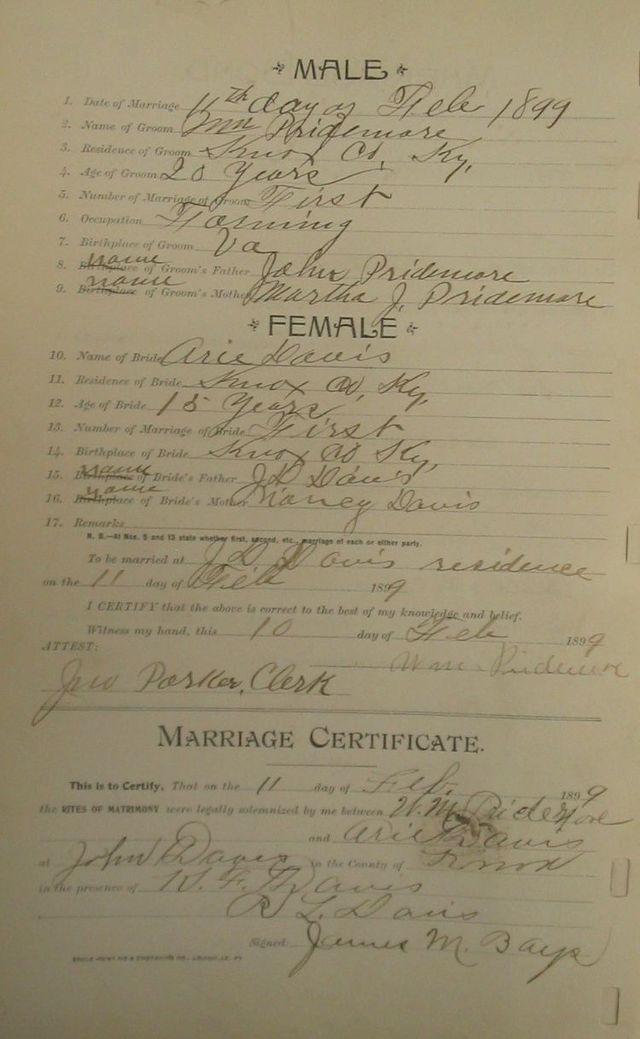 MALE
1. Date of Marriage 11th day of Feb 1899
2. Name of Groom Wm Pridemore
3. Residence of Groom Knox Co, Ky,
4. Age of Groom 20 Years
5. Number of Marriage of Groom First
6. Occupation Farming
7. Birthplace of Groom Va
name
8. Birthplace of Groom's Father John Pridemore
name
9. Birthplace of Groom's Mother Martha J. Pridemore
FEMALE
10. Name of Bride Arie Davis
11. Residence of Bride Knox Co, Ky,
12. Age of Bride 15 Years
13. Number of Marriage of Bride First
14. Birthplace of Bride Knox Co Ky,
name
15. Birthplace of Bride's Father J D Davis
name
16. Birthplace of Bride's Mother Nancy Davis
17. Remarks
N. B.—At Nos. 5 and 13 state whether first, second, etc., marriage of each or either party.
To be married at J D Davis residence
on the 11 day of Feb 1899
I CERTIFY that the above is correct to the best of my knowledge and belief.
Witness my hand, this 10 day of Feb 1899
ATTEST:
Wm Pridemore
Jno Parker, Clerk
MARRIAGE CERTIFICATE.
This is to Certify, That on the 11 day of Feb. 1899
the RITES OF MATRIMONY were legally solemnized by me between W. M. Pridemore
and Arie Davis
at John Davis in the County of Knox
in the presence of H. F. Davis
R L. Davis
Signed: James M. Bays